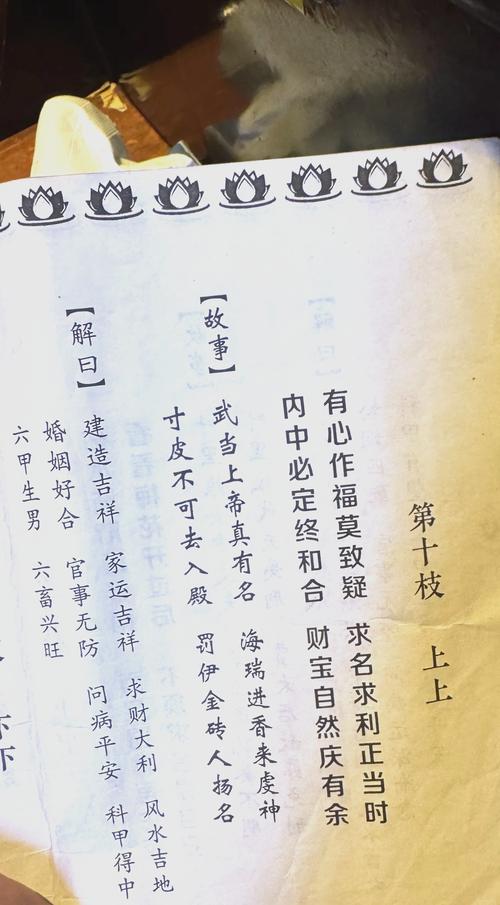 第十枝 上上
有心作福莫致疑 求名求利正当时
内中必定终和合 财宝自然庆有余
【故事】
武当上帝真有名 海瑞进香来虔神
寸皮不可去入殿 罚伊金砖人扬名
【解曰】
建造吉祥 家运吉祥 求财大利 风水吉地
婚姻好合 官事无防 问病平安 科甲得中
六甲生男 六畜兴旺